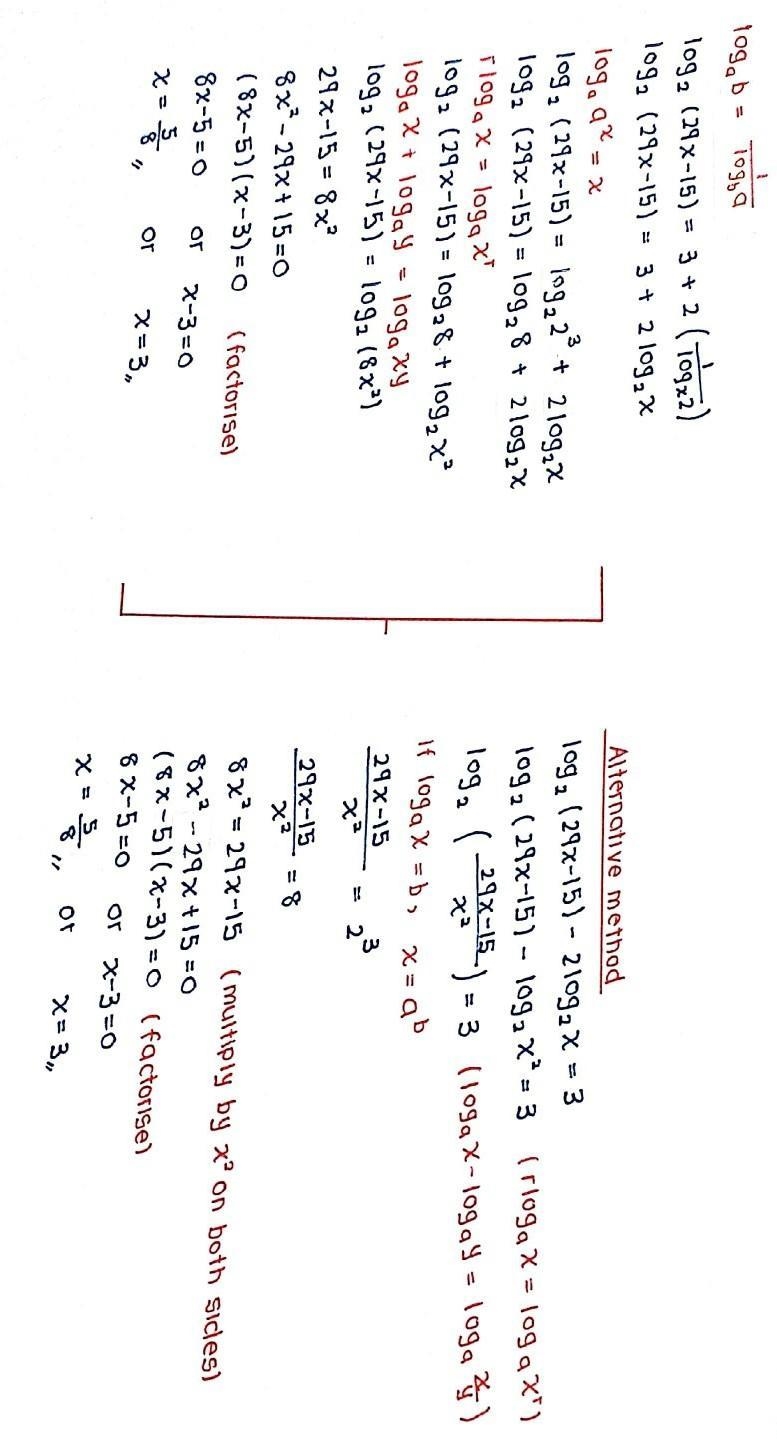 log_a b = 1/log_b a
log₂ (29x-15) = 3 + 2 (1/logₓ2)
log₂ (29x-15) = 3 + 2 log₂ x
log_a aˣ = x
log₂ (29x-15) = log₂ 2³ + 2 log₂ x
log₂ (29x-15) = log₂ 8 + 2 log₂ x
r log_a x = log_a xʳ
log₂ (29x-15) = log₂ 8 + log₂ x²
log_a x + log_a y = log_a xy
log₂ (29x-15) = log₂ (8x²)
29x-15 = 8x²
8x² - 29x + 15 = 0
(8x-5)(x-3) = 0 (factorise)
8x-5 = 0 or x-3 = 0
x = 5/8 〃 or x = 3 〃
Alternative method
log₂ (29x-15) - 2 log₂ x = 3
log₂ (29x-15) - log₂ x² = 3 (r log_a x = log_a xʳ)
log₂ ((29x-15)/x²) = 3 (log_a x - log_a y = log_a x/y)
If log_a x = b, x = aᵇ
(29x-15)/x² = 2³
(29x-15)/x² = 8
8x² = 29x-15 (multiply by x² on both sides)
8x² - 29x + 15 = 0
(8x-5)(x-3) = 0 (factorise)
8x-5 = 0 or x-3 = 0
x = 5/8 〃 or x = 3 〃